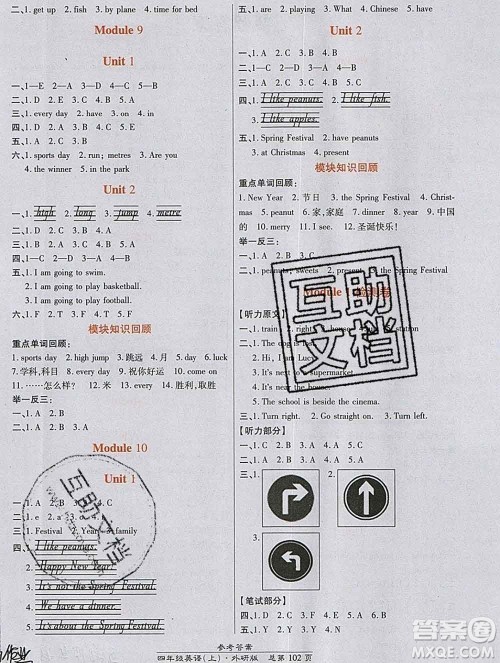 二、1. get up 2. fish 3. by plane 4. time for bed
Module 9
Unit 1
一、1—E 2—D 3—A 4—C 5—B
二、1. D 2. E 3. C 4. B 5. A
三、1. every day 2. have 3. on 4. in
四、1. D 2. A 3. E 4. C 5. B
五、1. D 2. A 3. C 4. B
六、1. sports day 2. run; metres 3. Are you
the winner 5. in the park
Unit 2
一、1. high 2. long 3. jump 4. metre
二、1. B 2. A 3. A
三、1. I am going to swim.
2. I am going to play basketball.
3. I am going to play football.
四、1. T 2. T 3. F 4. F
模块知识回顾
重点单词回顾:
1. sports day 2. high jump 3. 跳远 4. 月 5. day 6. luck
7. 学科,科目 8. windy 9. happy 10. come on
11. ……怎么样? 12. 米 13. every 14. 胜利,取胜
举一反三:
1. am 2. are
Module 10
Unit 1
一、1. C 2. B 3.
二、1. e 2. a 3.
三、1. Festival 2. Year 3. family
四、1. I like peanuts.
2. Happy New Year!
3. It's not the Spring Festival.
4. We have a dinner.
5. It's about the Spring Festival.
五、1. are 2. do 3. playing 4. What 5. Chinese 6. have
Unit 2
一、1. A 2. C 3. A 4. B 5. C
二、1. F 2. T 3. T 4. F
三、1. C 2. A 3. B
四、1. I like peanuts. 2. I like fish.
3. I like apples.
五、1. Spring Festival 2. have peanuts
3. at Christmas 4. present
模块知识回顾
重点单词回顾:
1. New Year 2. 节日 3. the Spring Festival 4. Christ-
mas 5. peanut 6. 家,家庭 7. dinner 8. year 9. 中国
的 10. merry 11. see 12. 圣诞快乐!
举一反三:
1. peanuts; sweets 2. present 3. the Spring Festival
Module 1 检测卷
【听力原文】
一、1. train 2. right 3. 4. 5. station
二、1. The dog is
2. Hi, I am Lucy.
3. It's near the house.
4. It's next to the
5. The school is beside the cinema.
三、1. Turn right. 2. Go straight on. 3. Turn left.
【听力部分】
一、1. C 2. B 3. A 4. A 5. A
二、1. A 2. B 3. B 4. A 5. A
三、1.
2.
3.
【笔试部分】
一、1. C 2. B 3. D 4. A 5. E
二、1. B 2. A 3. A 4. B 5. A
互助文档
互助文档
作业
参考答案
四年级英语(上)·外研版 总第 102 页